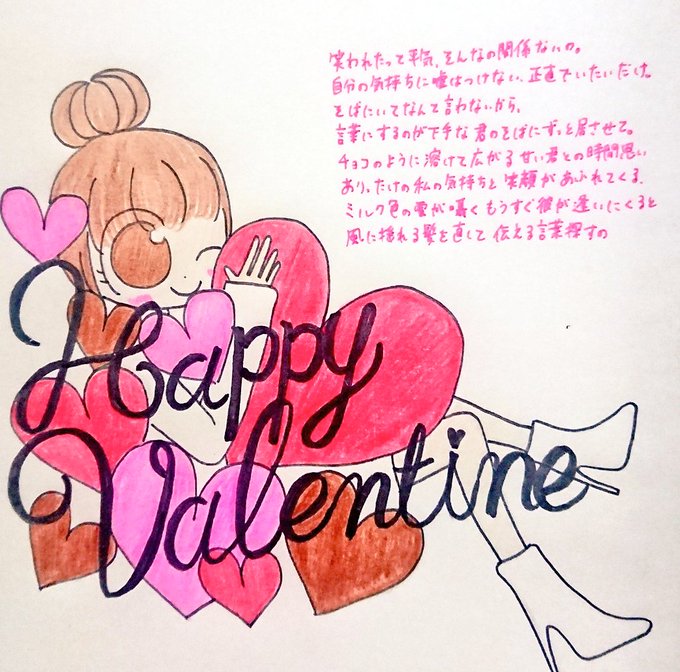 笑われたって平気、そんなの関係ないの。
自分の気持ちに嘘はつけない、正直でいたいだけ。
そばにいてなんて言わないから、
言葉にするのが下手な君のそばにずっと居させて。
チョコのように溶けて広がる甘い君との時間思い
ありったけの私の気持ちと笑顔があふれてくる、
ミルク色の雲が囁くもうすぐ彼が逢いにくると
風に揺れる髪を直して伝える言葉探すの
Happy
Valentine